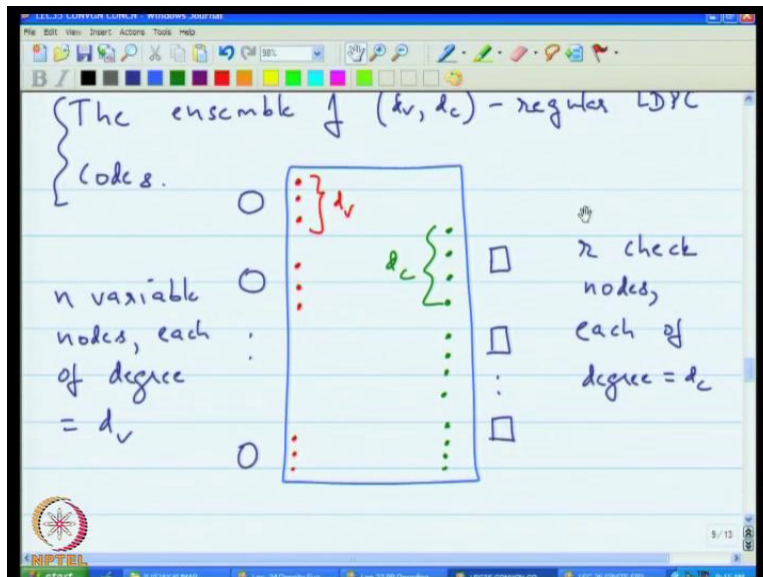 LEC35 CONVGN CONCN - Windows Journal
File Edit View Insert Actions Tools Help
98%
B I
The ensemble of (dv, dc) - regular LDPC
Codes.
dv
dc
n variable
nodes, each
of degree
= dv
r check
nodes,
each of
degree = dc
9/13
NPTEL
start